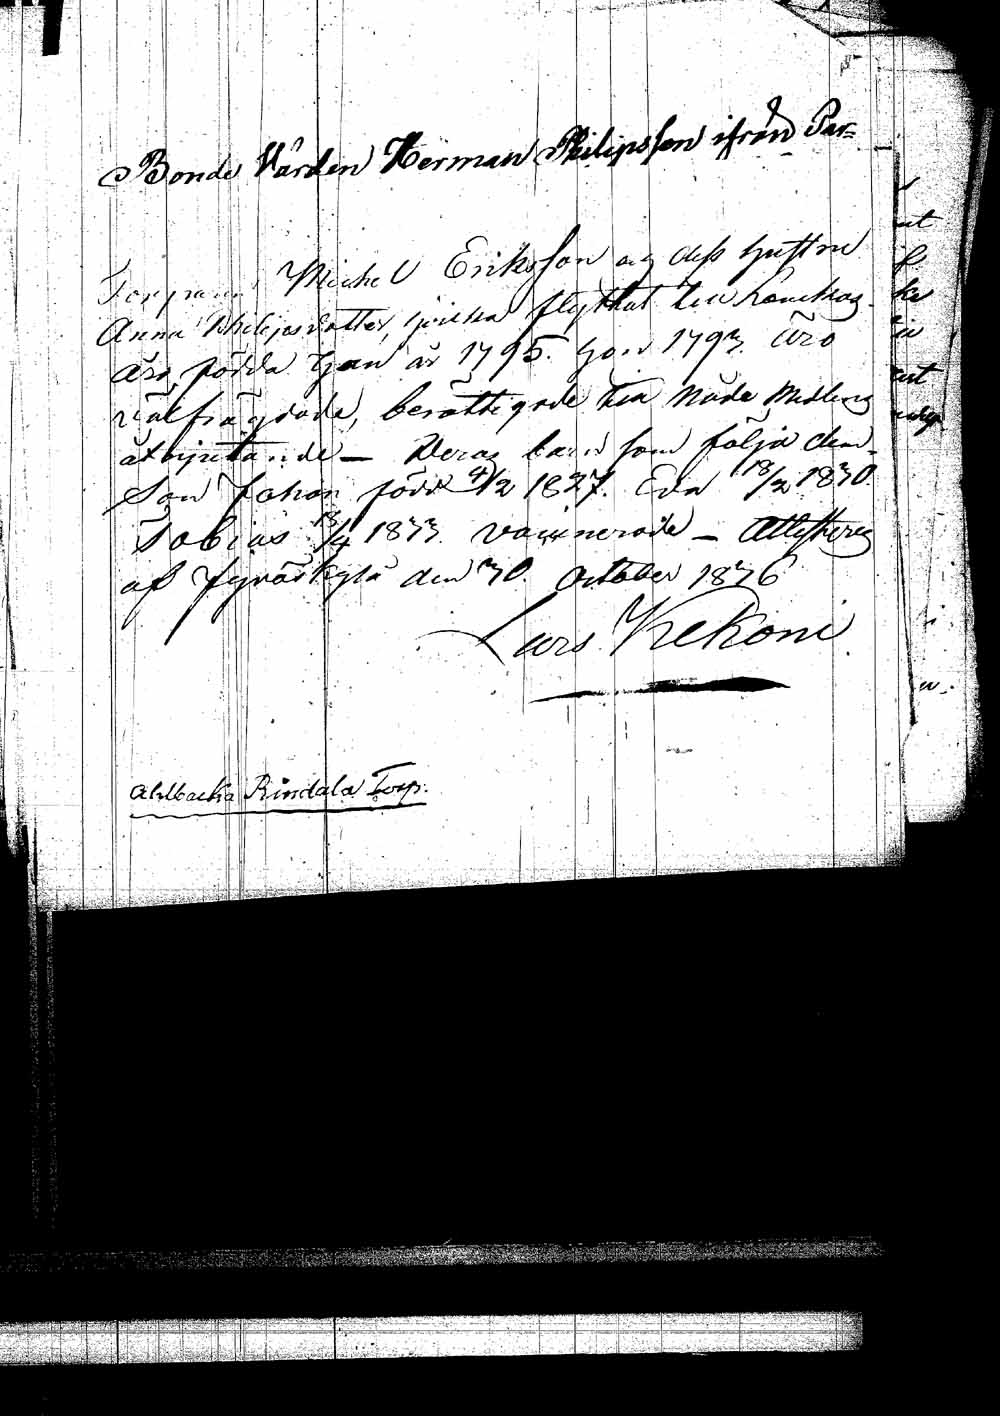 Bonde Värden Herman Philipsson ifrån Par=
Torparen Michel Eriksson och dess hustru
Anna Philipsdotter, hvilka flyttat till
äro födda han år 1795. hon 1793. äro
välfrägdade, berättigade till Nåde Medlens
åtnjutande – Deras barn som följa dem.
Son Johan född 4/2 1827. Eva 18/2 1830.
Tobias 13/4 1833. vaccinerade – Attesteras
af Jyväskylä den 30. October 1836
Lars Kekoni.
Ahlbacka Rindala Torp.